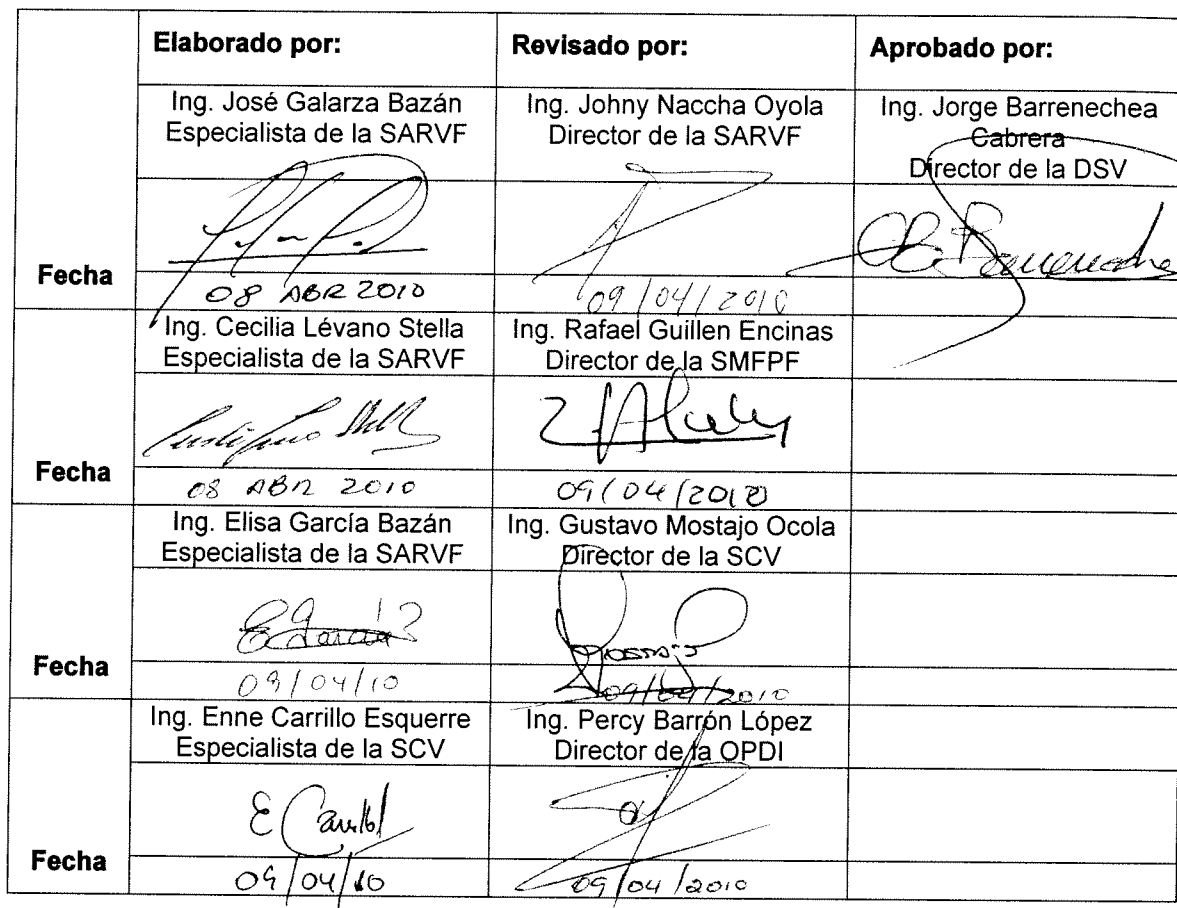 Elaborado por:
Revisado por:
Aprobado por:
Ing. José Galarza Bazán
Especialista de la SARVF
Ing. Johny Naccha Oyola
Director de la SARVF
Ing. Jorge Barrenechea
Cabrera
Director de la DSV
Fecha
08 ABR 2010
09/04/2010
Ing. Cecilia Lévano Stella
Especialista de la SARVF
Ing. Rafael Guillen Encinas
Director de la SMFPF
Fecha
08 ABR 2010
09/04/2010
Ing. Elisa García Bazán
Especialista de la SARVF
Ing. Gustavo Mostajo Ocola
Director de la SCV
Fecha
09/04/10
09/04/2010
Ing. Enne Carrillo Esquerre
Especialista de la SCV
Ing. Percy Barrón López
Director de la OPDI
E Carrillo
Fecha
09/04/10
09/04/2010